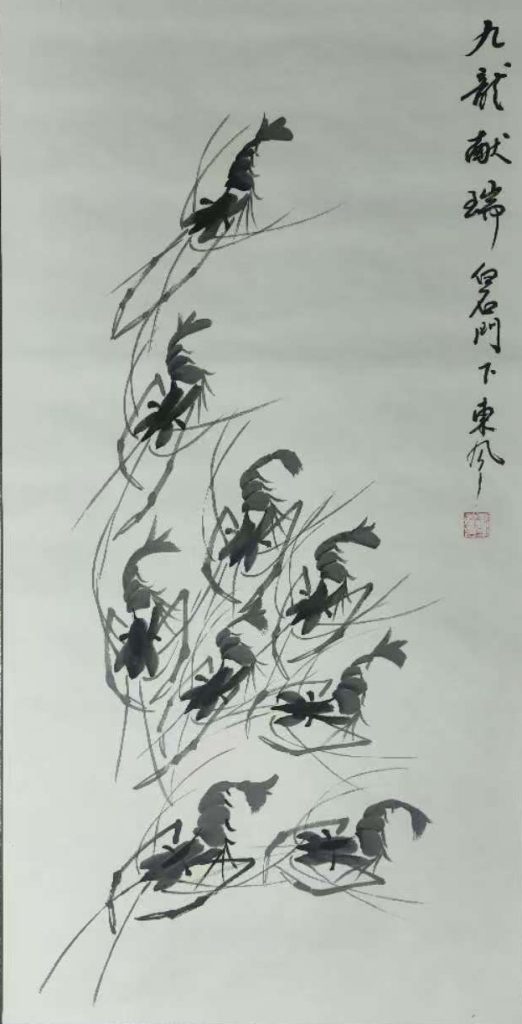 九龍献瑞 白石門下東風